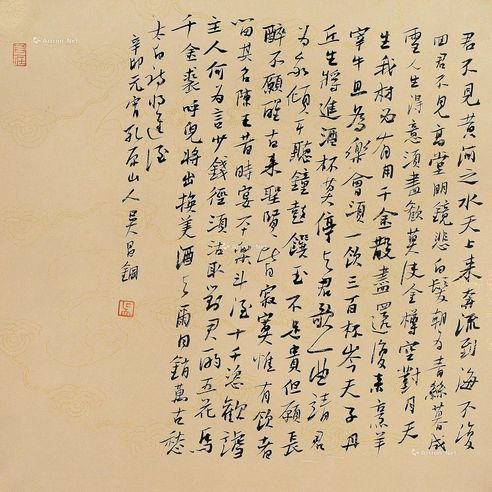 君不见黄河之水天上来奔流到海不復
回君不見高堂明鏡悲白髮朝如青絲暮成
雪人生得意須盡歡莫使金樽空對月天
生我材必有用千金散盡還復來烹羊
宰牛且為樂會須一飲三百杯岑夫子丹
丘生將進酒杯莫停与君歌一曲請君
為我傾耳聽鐘鼓饌玉不足貴但願長
醉不願醒古來聖賢皆寂寞惟有飲者
留其名陳王昔時宴平樂斗酒十千恣歡謔
主人何為言少錢徑須沽取對君酌五花馬
千金裘呼兒將出換美酒与爾同銷萬古愁
太白詩將進酒
辛卯元宵乳原山人吳昌鋼